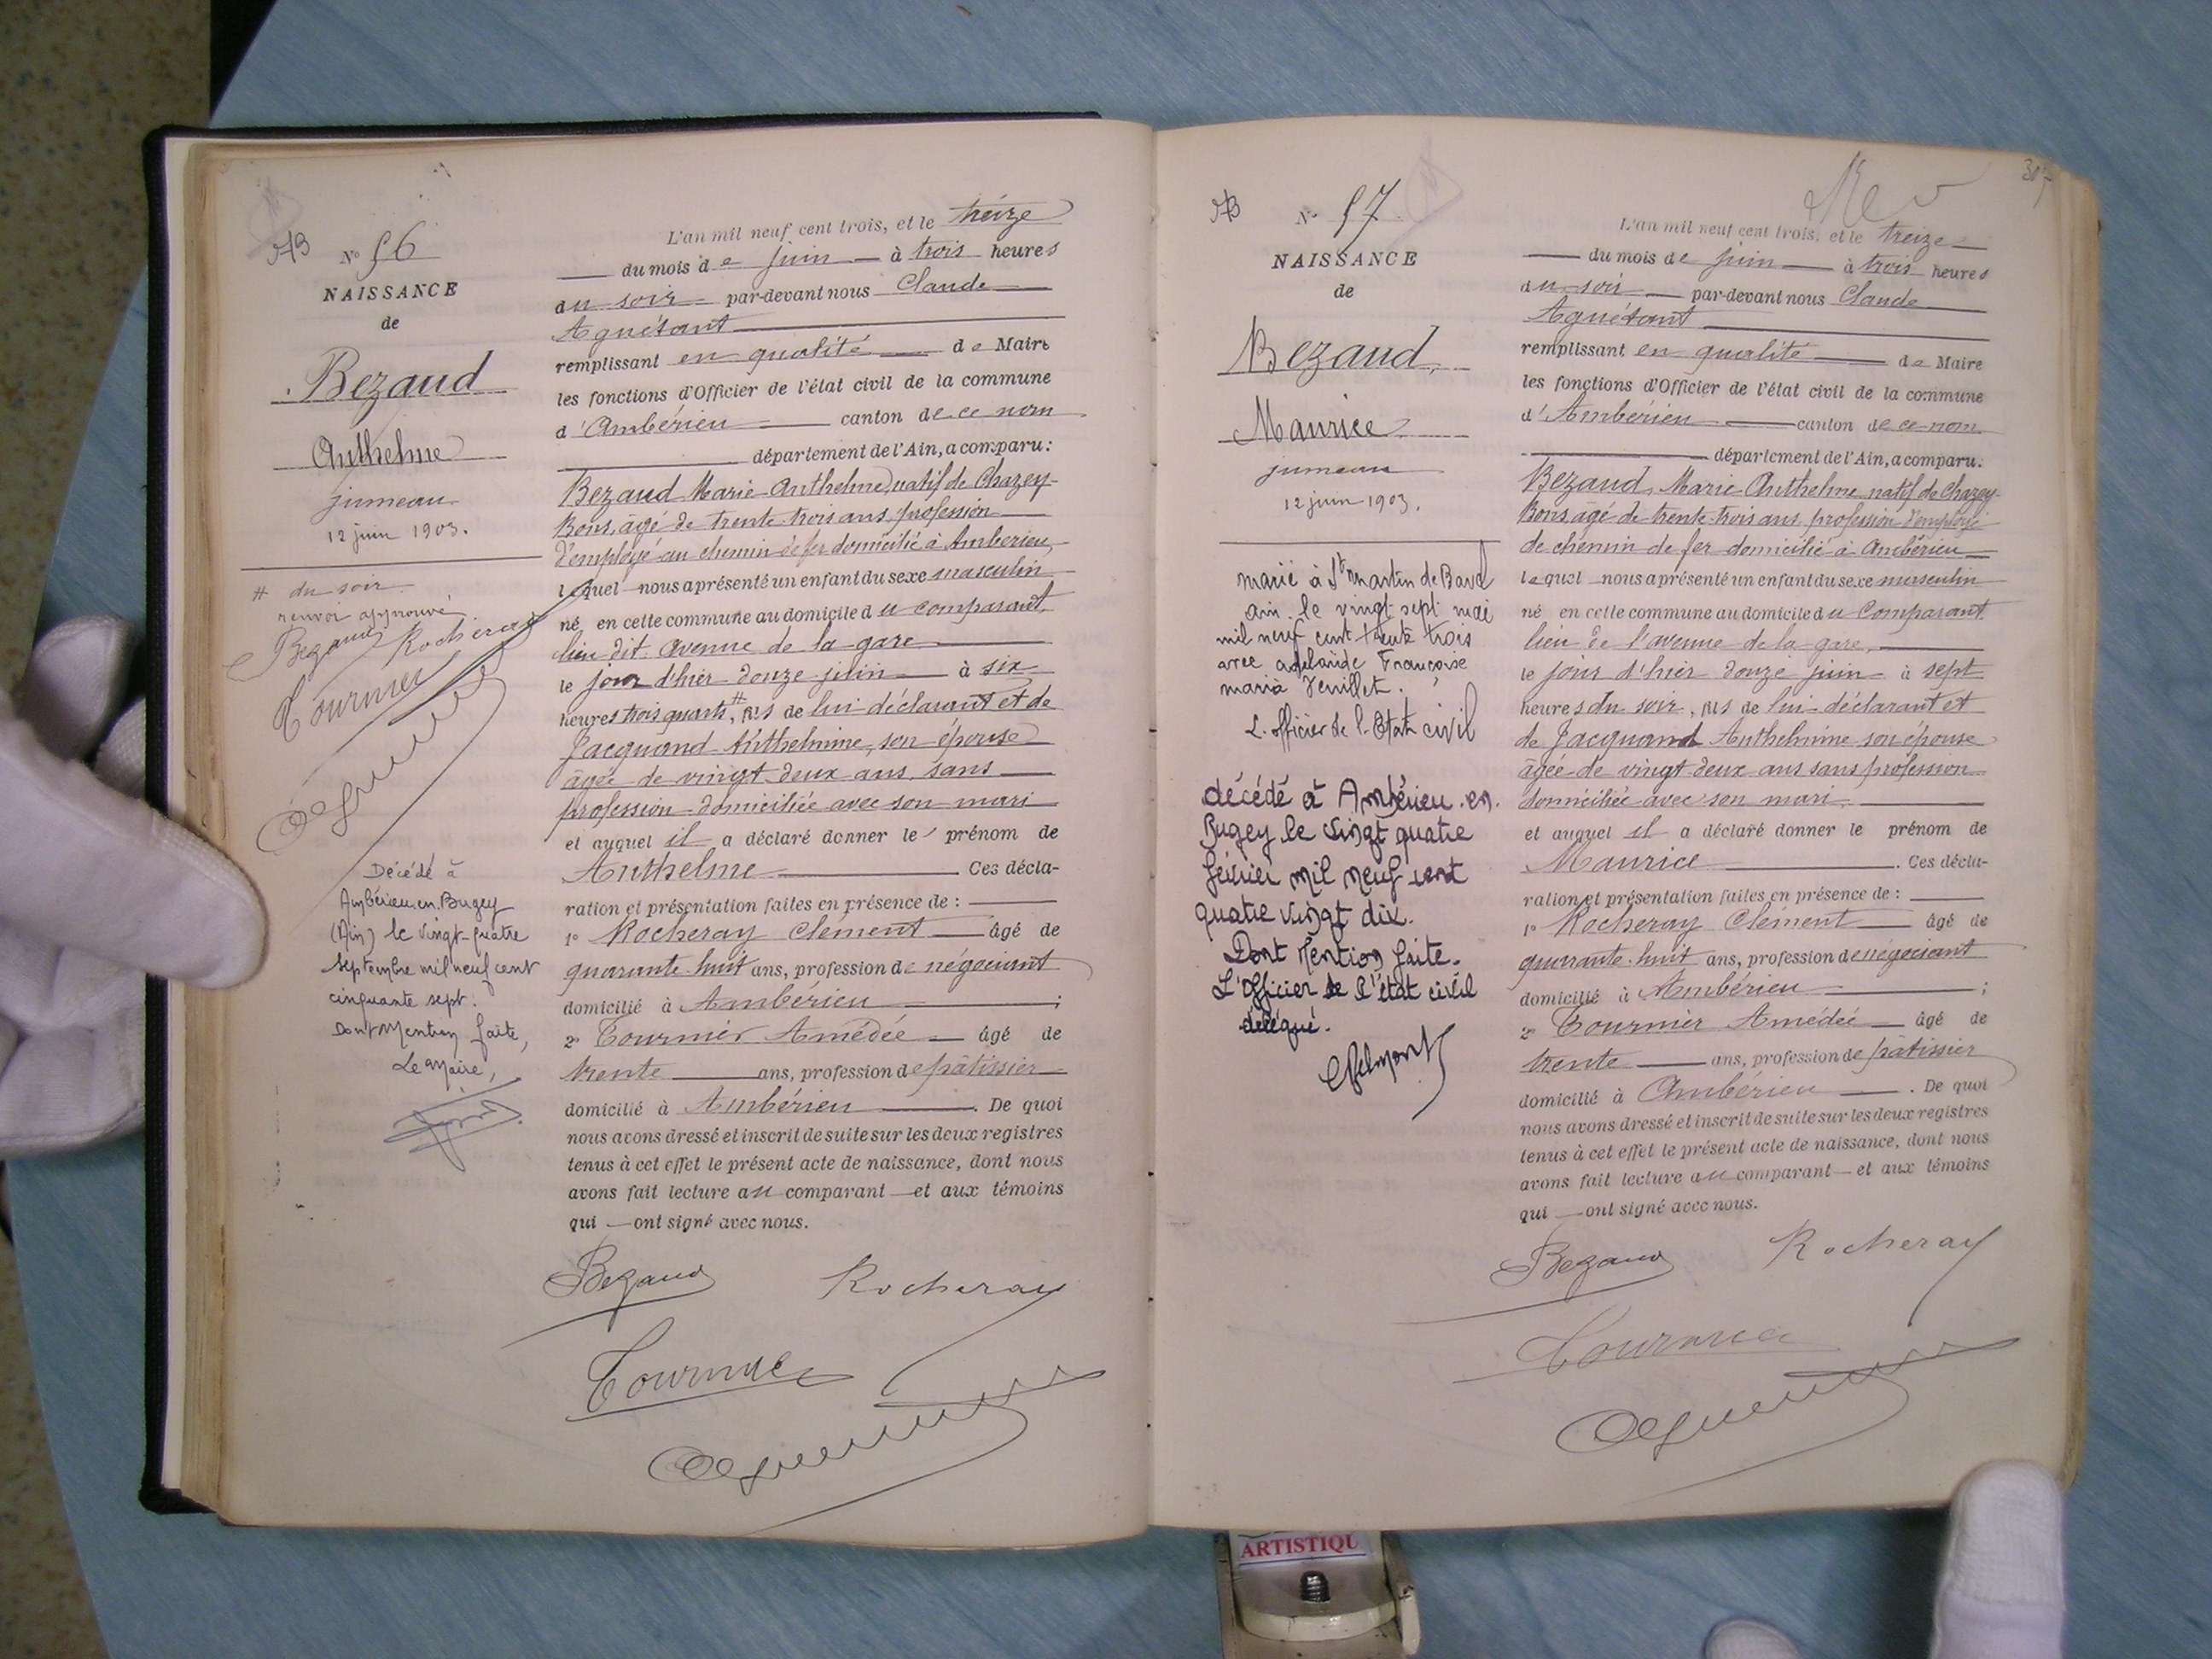 AB
N° 56
NAISSANCE
de
Bezaud
Anthelme
jumeau
12 juin 1903.
# du soir
renvoi approuvé
Bezaud Rocheray
Tournier
Décédé à
Ambérieu-en-Bugey
(Ain) le vingt-quatre
septembre mil neuf cent
cinquante sept.
Dont Mention faite,
Le Maire,
L'an mil neuf cent trois, et le treize
du mois de juin à trois heures
du soir par-devant nous Claude
Aguétant
remplissant en qualité de Maire
les fonctions d'Officier de l'état civil de la commune
d'Ambérieu canton de ce nom
département de l'Ain, a comparu:
Bezaud Marie-Anthelme, natif de Chazey-
Bons, âgé de trente-trois ans, profession
d'employé au chemin de fer domicilié à Ambérieu,
lequel nous a présenté un enfant du sexe masculin
né en cette commune au domicile du comparant,
lieu dit avenue de la gare
le jour d'hier douze juin à six
heures trois quarts #, fils de lui déclarant et de
Jacquand Anthelmine, son épouse
âgée de vingt deux ans, sans
profession domiciliée avec son mari
et auquel il a déclaré donner le prénom de
Anthelme. Ces décla-
ration et présentation faites en présence de :
1° Rocheray Clément âgé de
quarante-huit ans, profession de négociant
domicilié à Ambérieu ;
2° Tournier Amédée âgé de
trente ans, profession de pâtissier
domicilié à Ambérieu. De quoi
nous avons dressé et inscrit de suite sur les deux registres
tenus à cet effet le présent acte de naissance, dont nous
avons fait lecture au comparant et aux témoins
qui ont signé avec nous.
Bezaud Rocheray
Tournier
AB
N° 57
NAISSANCE
de
Bezaud,
Maurice
jumeau
12 juin 1903.
marié à St Martin de Bavel
Ain le vingt sept mai
mil neuf cent trente trois
avec adelaïde Françoise
maria
L'officier de l'Etat civil
décédé à Ambérieu.en.
Bugey le vingt quatre
février mil neuf cent
quatre vingt dix.
Dont Mention faite.
L'Officier de l'état civil
délégué.
L'an mil neuf cent trois, et le treize
du mois de juin à trois heures
du soir par-devant nous Claude
Aguétant
remplissant en qualité de Maire
les fonctions d'Officier de l'état civil de la commune
d'Ambérieu canton de ce nom
département de l'Ain, a comparu.
Bezaud, Marie-Anthelme natif de Chazey-
Bons âgé de trente-trois ans, profession d'employé
de chemin de fer domicilié à Ambérieu
lequel nous a présenté un enfant du sexe masculin
né en cette commune au domicile du Comparant
lieu de l'avenue de la gare,
le jour d'hier douze juin à sept
heures du soir, fils de lui déclarant et
de Jacquand Anthelmine son épouse
âgée de vingt deux ans sans profession
domiciliée avec son mari
et auquel il a déclaré donner le prénom de
Maurice. Ces décla-
ration et présentation faites en présence de :
1° Rocheray Clément âgé de
quarante-huit ans, profession de négociant
domicilié à Ambérieu ;
2° Tournier Amédée âgé de
trente ans, profession de pâtissier
domicilié à Ambérieu. De quoi
nous avons dressé et inscrit de suite sur les deux registres
tenus à cet effet le présent acte de naissance, dont nous
avons fait lecture au comparant et aux témoins
qui ont signé avec nous.
Bezaud Rocheray
Tournier
ARTISTIQU